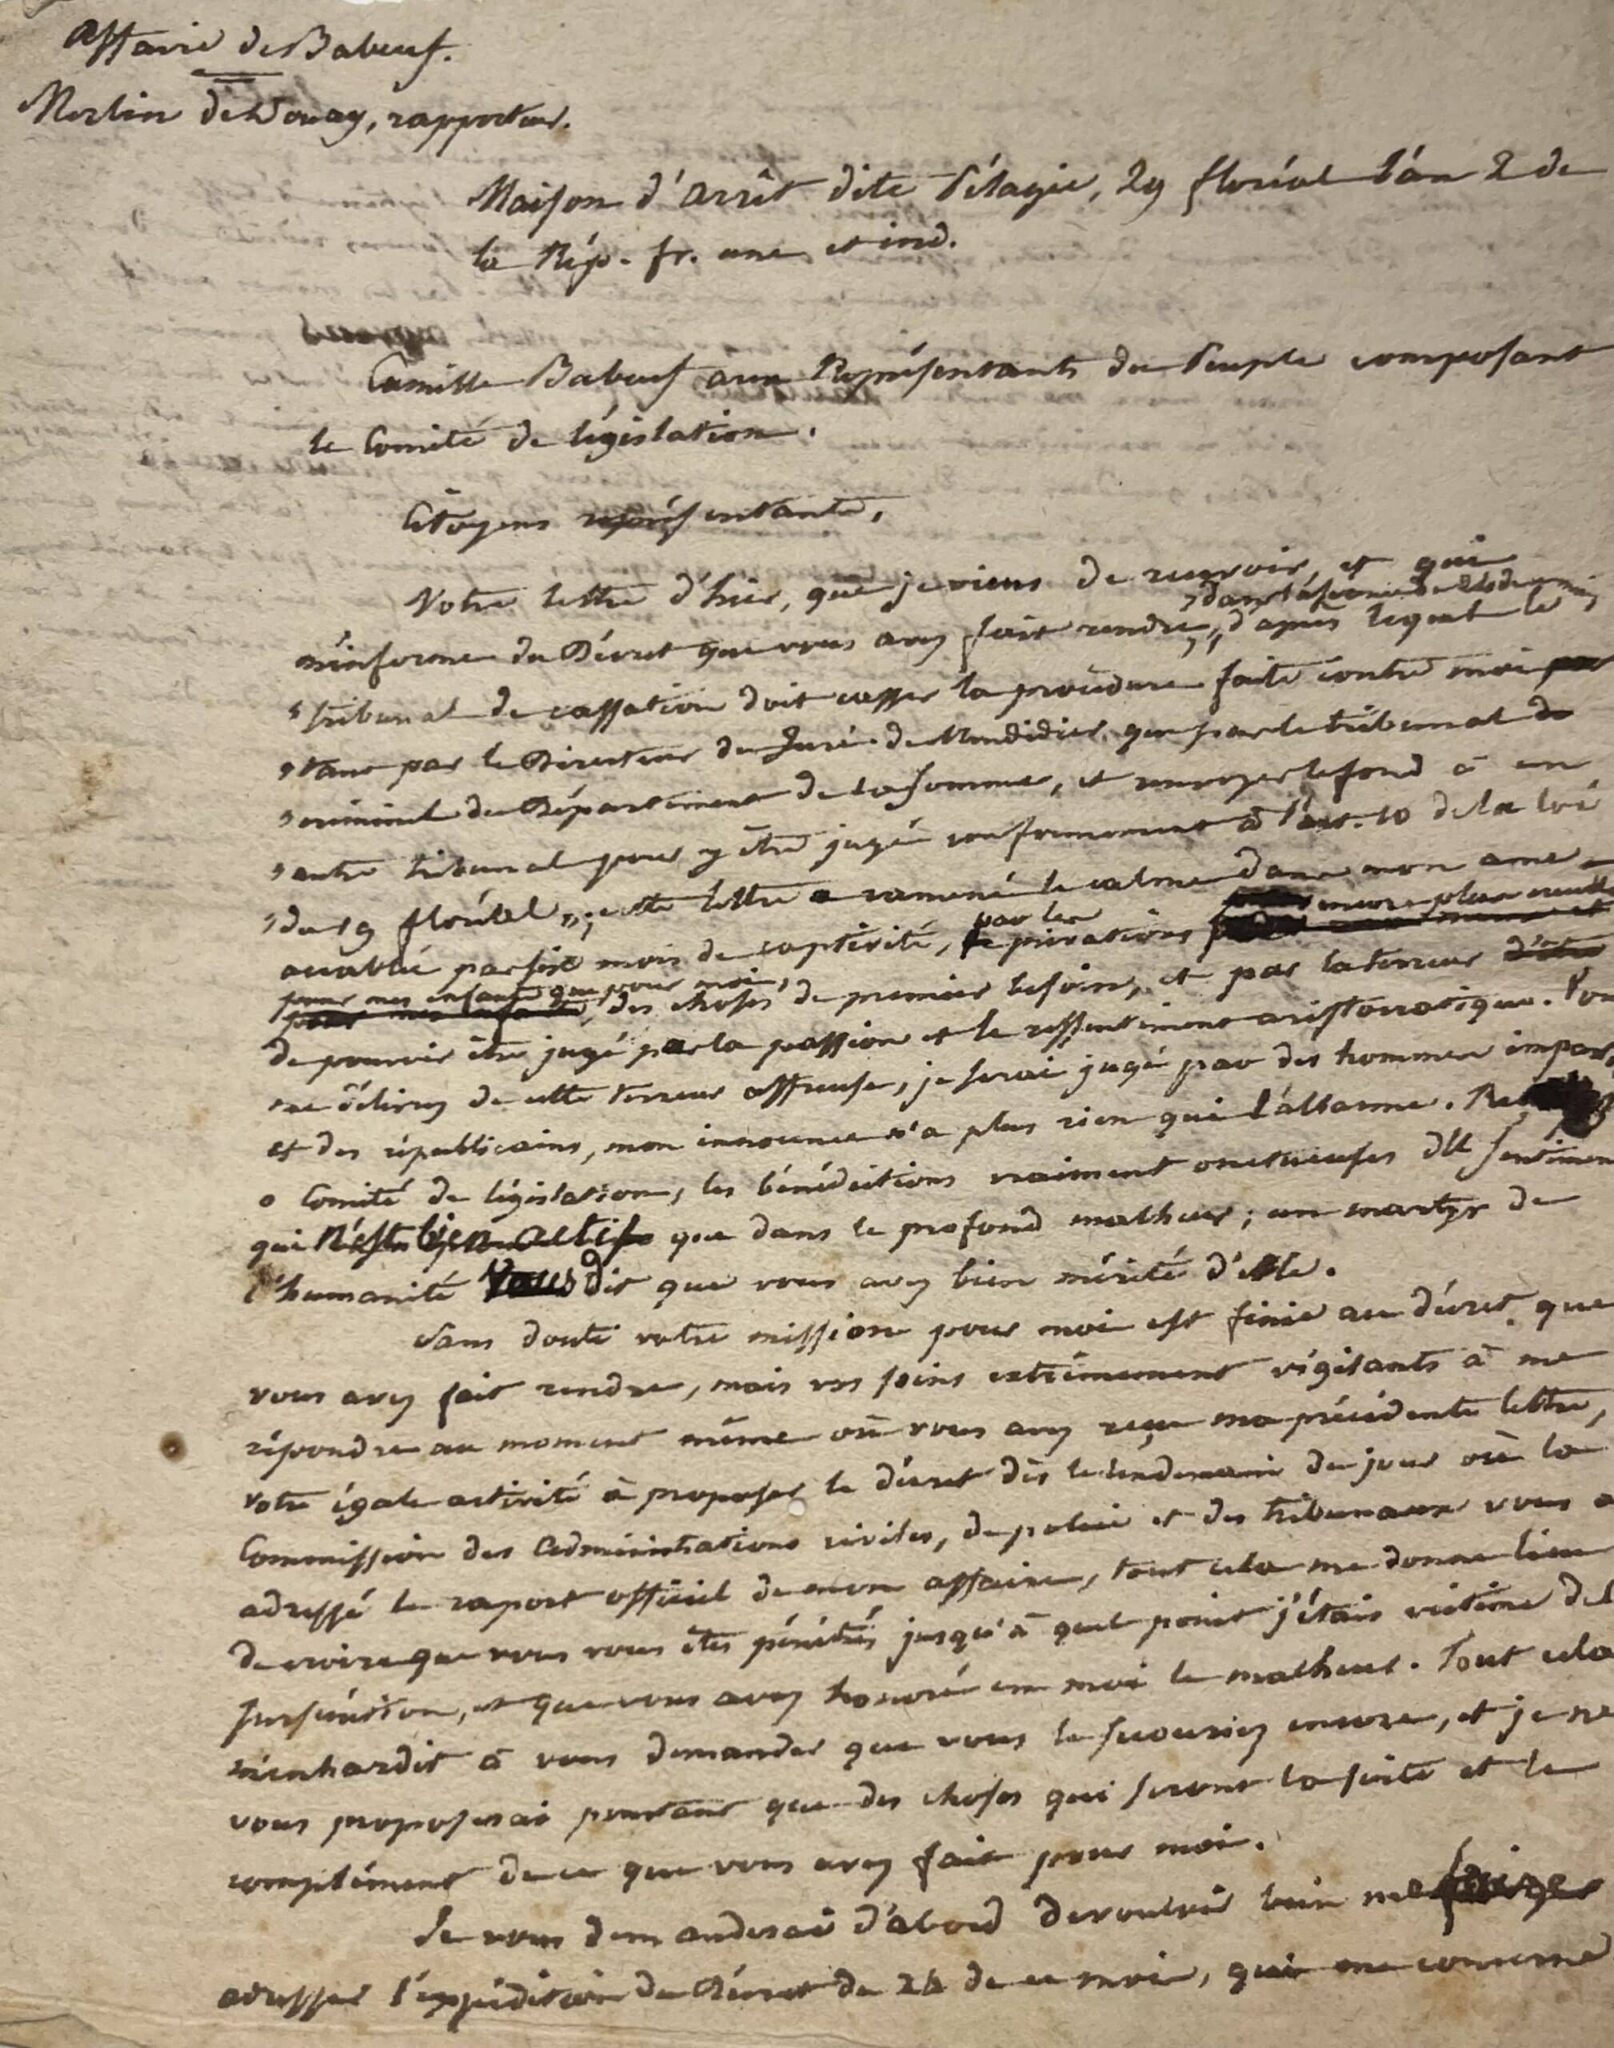 Affaire de Babeuf.
Merlin de Douay, rapporteur.
Maison d'arrêt dite Pélagie, 29 floréal l'an 2 de
la Rép. fr. une et ind.
Camille Babeuf aux Représentants du Peuple composant
le Comité de législation.
Citoyens représentants,
Votre lettre d'hier, que je viens de recevoir, et qui
m'informe du Décret que vous avez fait rendre, d'après lequel le
dans la séance du 24 de ce mois
"tribunal de cassation doit casser la procédure faite contre moi
"tant par le Directeur du Juré de Mondidier que par le tribunal
"criminel du Département de la Somme, et renvoyer le fond à un
"autre tribunal pour y être jugé conformément à l'art. 10 de la loi
"du 19 floréal"; cette lettre a ramené le calme dans mon ame
encore plus cruelles
accablée par six mois de captivité, par les privations
pour mes enfants que pour moi,
des choses de premier besoin, et par la terreur d'être
de pouvoir être jugé par la passion et le ressentiment aristocratique. Vous
me délivrez de cette terreur affreuse, je serai jugé par des hommes impar
et des républicains, mon innocence n'a plus rien qui l'allarme.
o Comité de législation, les bénédictions vraiment onctueuses du sentiment
qui n'est bien actif que dans le profond malheur; un martyr de
l'humanité vous dit que vous avez bien mérité d'elle.
Sans doute votre mission pour moi est finie au décret que
vous avez fait rendre, mais vos soins extrêmement vigilants à me
répondre au moment même où vous avez reçu ma précédente lettre,
votre égale activité à proposer le décret dès le lendemain du jour où la
Commission des Administrations civiles, de police et des tribunaux vous a
adressé le raport officiel de mon affaire, tout cela me donne lieu
de croire que vous vous êtes pénétrés jusqu'à quel point j'étais victime de l
persécution, et que vous avez honoré en moi le malheur. Tout cela
m'enhardit à vous demander que vous le secouriez encore, et je ne
vous proposerai pourtant que des choses qui seront la suite et le
complément de ce que vous avez fait pour moi.
Je vous demanderai d'abord de vouloir bien me
adresser l'expédition du Décret du 24 de ce mois, qui me concerne